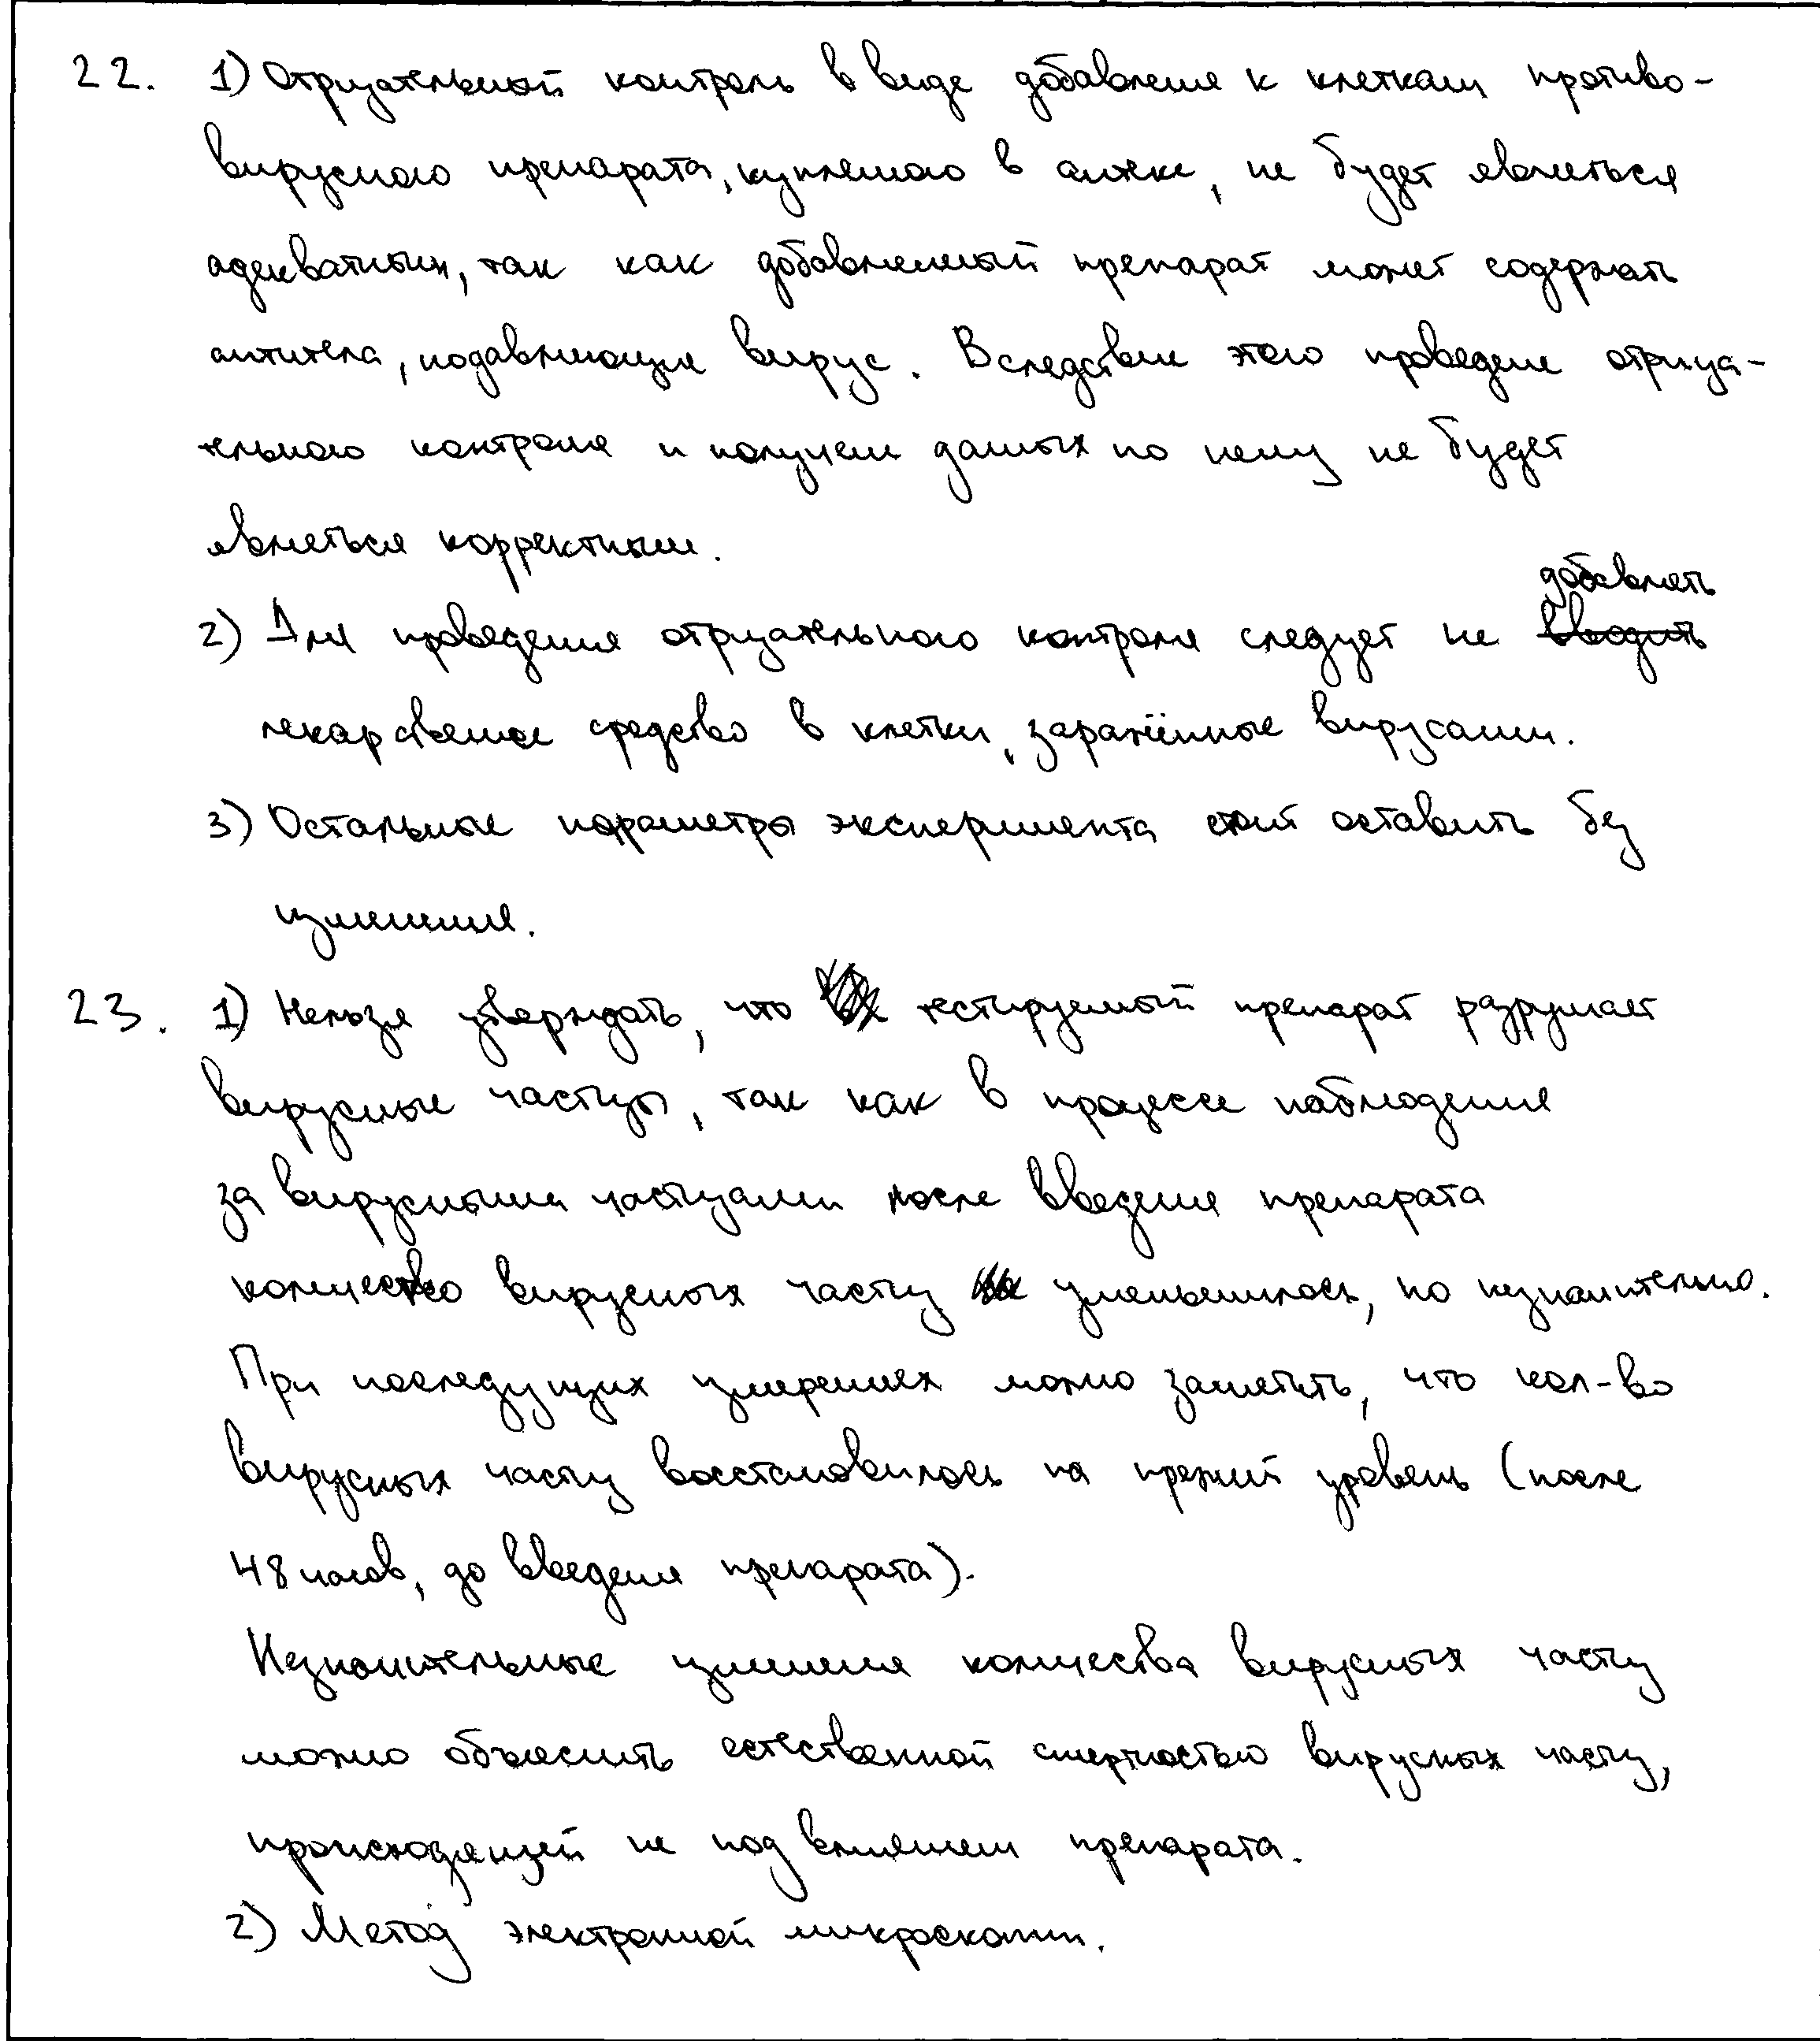 22. 1) Отрицательный контроль в виде добавления к клеткам противо-
вирусного препарата, купленного в аптеке, не будет являться
адекватным, так как добавленный препарат может содержать
антитела, подавляющие вирус. Вследствие этого проведение отрица-
тельного контроля и получение данных по нему не будет
являться корректным.
добавлять
2) Для проведения отрицательного контроля следует не вводить
лекарственное средство в клетки, заражённые вирусами.
3) Остальные параметры эксперимента стоит оставить без
изменения.
23. 1) Нельзя утверждать, что тестируемый препарат разрушает
вирусные частицы, так как в процессе наблюдения
за вирусными частицами после введения препарата
количество вирусных частиц уменьшилось, но незначительно.
При последующих измерениях можно заметить, что кол-во
вирусных частиц восстановилось на прежний уровень (после
48 часов, до введения препарата).
Незначительные изменения количества вирусных частиц
можно объяснить естественной смертностью вирусных частиц,
происходящей не под влиянием препарата.
2) Метод электронной микроскопии.